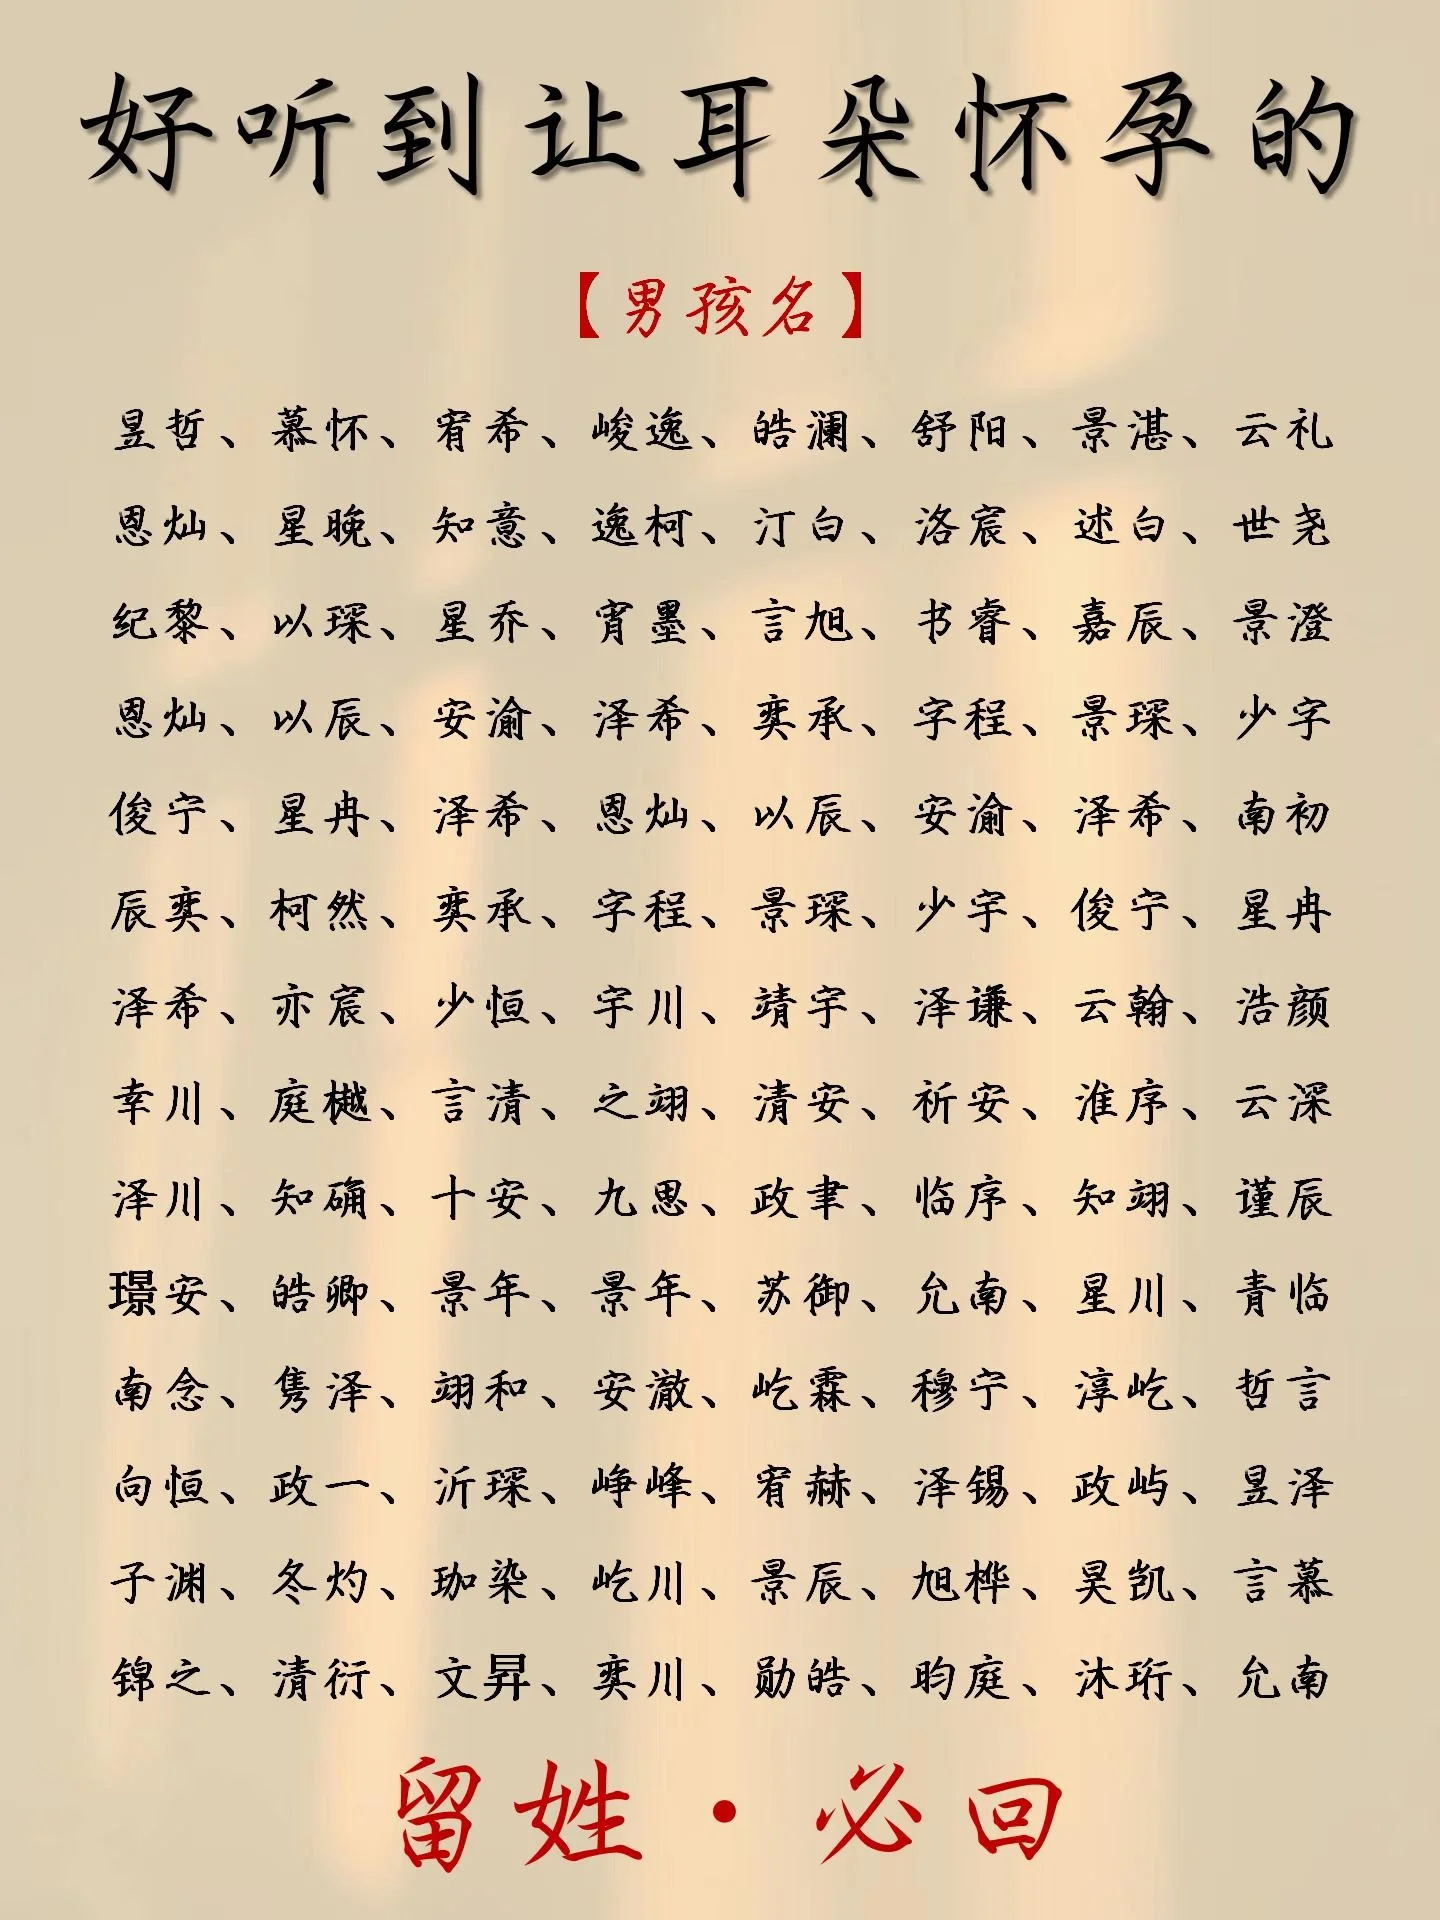 好听到让耳朵怀孕的
【男孩名】
昱哲、慕怀、宥希、峻逸、皓澜、舒阳、景湛、云礼
恩灿、星晚、知意、逸柯、汀白、洛宸、述白、世尧
纪黎、以琛、星乔、宵墨、言旭、书睿、嘉辰、景澄
恩灿、以辰、安渝、泽希、奕承、字程、景琛、少字
俊宁、星冉、泽希、恩灿、以辰、安渝、泽希、南初
辰奕、柯然、奕承、字程、景琛、少宇、俊宁、星冉
泽希、亦宸、少恒、宇川、靖宇、泽谦、云翰、浩颜
幸川、庭樾、言清、之翊、清安、祈安、淮序、云深
泽川、知确、十安、九思、政聿、临序、知翊、谨辰
璟安、皓卿、景年、景年、苏御、允南、星川、青临
南念、隽泽、翊和、安澈、屹霖、穆宁、淳屹、哲言
向恒、政一、沂琛、峥峰、宥赫、泽锡、政屿、昱泽
子渊、冬灼、珈染、屹川、景辰、旭桦、昊凯、言慕
锦之、清衍、文昇、奕川、勋皓、昀庭、沐珩、允南
留姓·必回